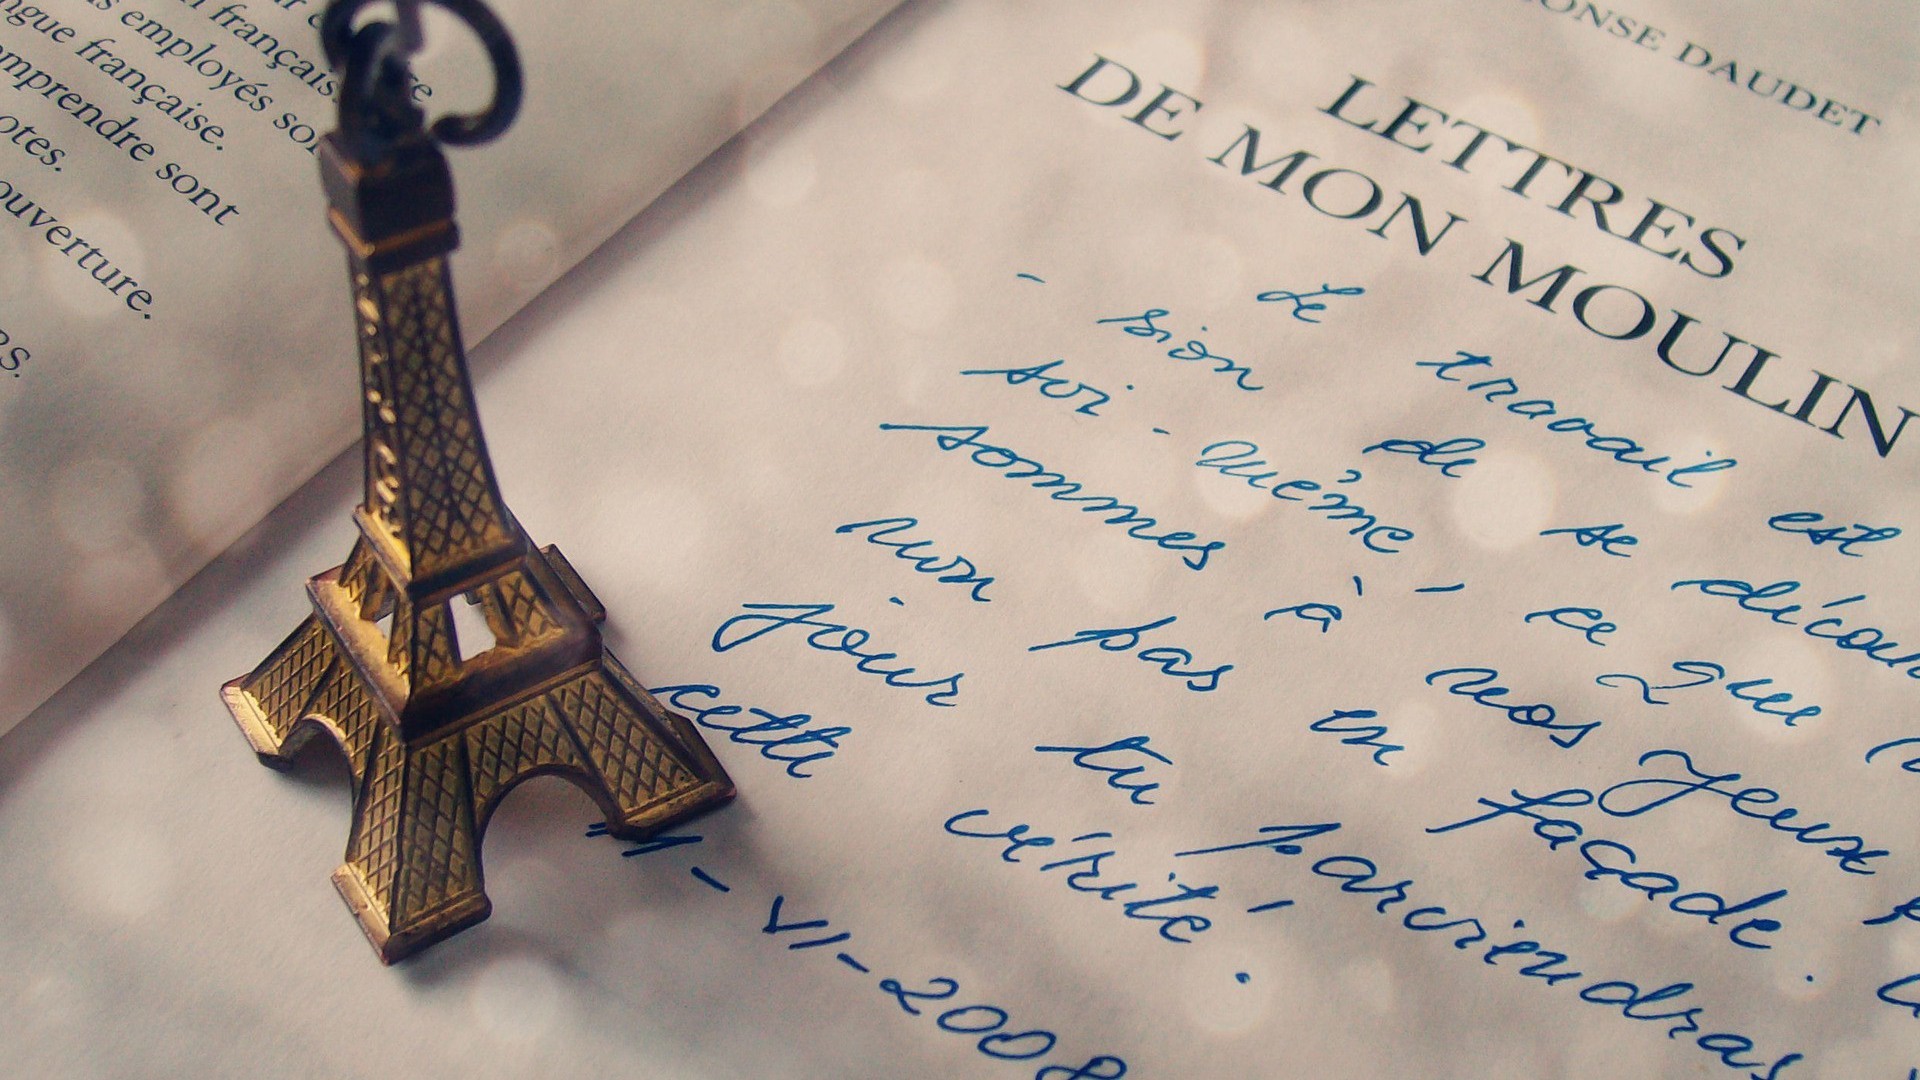 français.
s employés son
ngue française.
omprendre sont
otes.
ouverture.
RS.
ONSE DAUDET
LETTRES
DE MON MOULIN
Le travail est
- sion de se découv
soi-même, ce que n
sommes à nos yeux
non pas en façade.
jour tu parviendras
cette vérité.
- VI - 2008